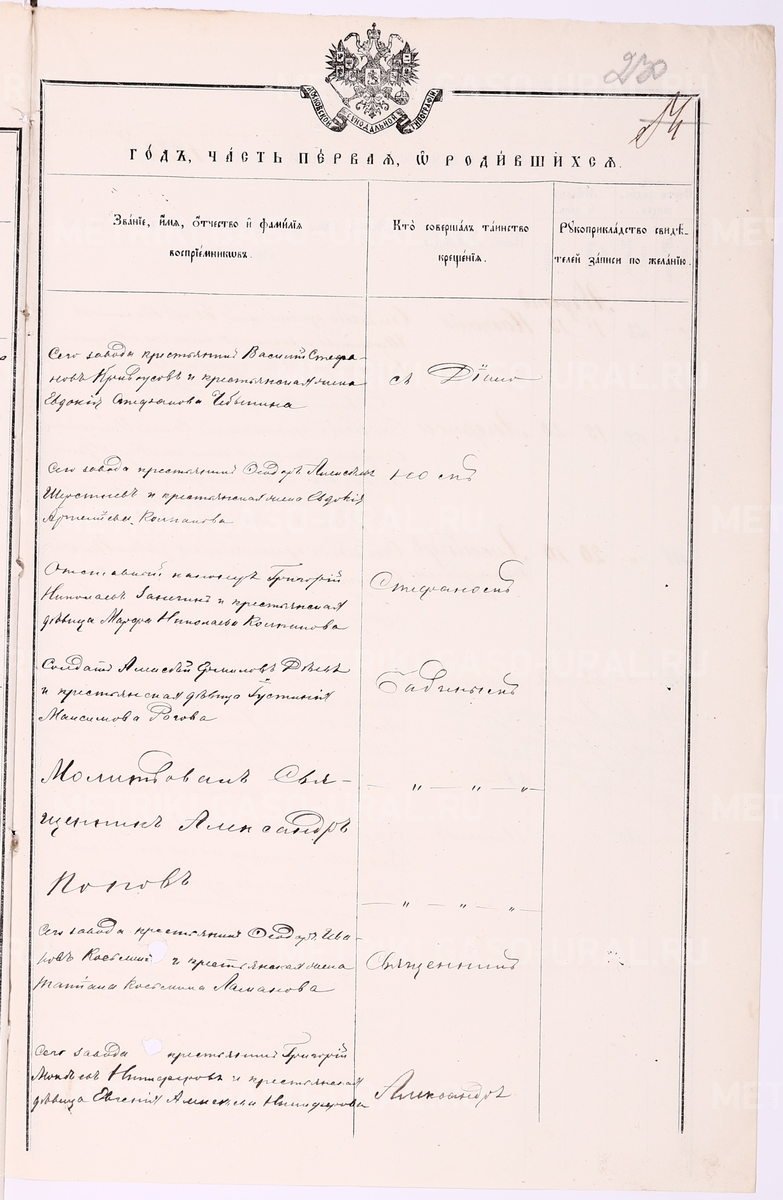 230
МОСКОВСКОЙ СѴНОДАЛЬНОЙ ТИПОГРАФІИ
ГО́ДЪ, ЧА́СТЬ ПЕ́РВАЯ, Ѡ҆ РОДИ́ВШИХСЯ.
Зва́нїе, и҆́мѧ, ѻ҆́тчество и҆ фами́лїѧ
воспрїе́мникѡвъ.
Кто̀ соверша́лъ та́инство
креще́нїѧ.
Рꙋкоприкла́дство свидѣ́-
телей за́писи по жела́нїю.
Сего завода крестьянинъ Василій Стефа-
новъ Кривоусовъ и крестьянская жена
Евдокія Стефанова
съ Діако
Сего завода крестьянинъ Ѳеодоръ Алексѣевъ
и крестьянская жена Евдокія
Колпакова
номъ
Отставной Григорій
Николаевъ и крестьянская
дѣвица Марфа Николаева Колпакова
Стефаномъ
Солдатъ Алексѣй
и крестьянская дѣвица Іустинія
Максимова Рогова
Бабинымъ
Молитвовалъ Свя-
щенникъ Александръ
— " — " — " —
Поповъ
— " — " — " —
Сего завода крестьянинъ Ѳеодоръ Ива-
новъ и крестьянская жена
Татіана Косьмина Ламанова
Священникъ
Сего завода крестьянинъ Григорій
Никифоровъ и крестьянская
дѣвица Евгенія Никифорова
Александръ